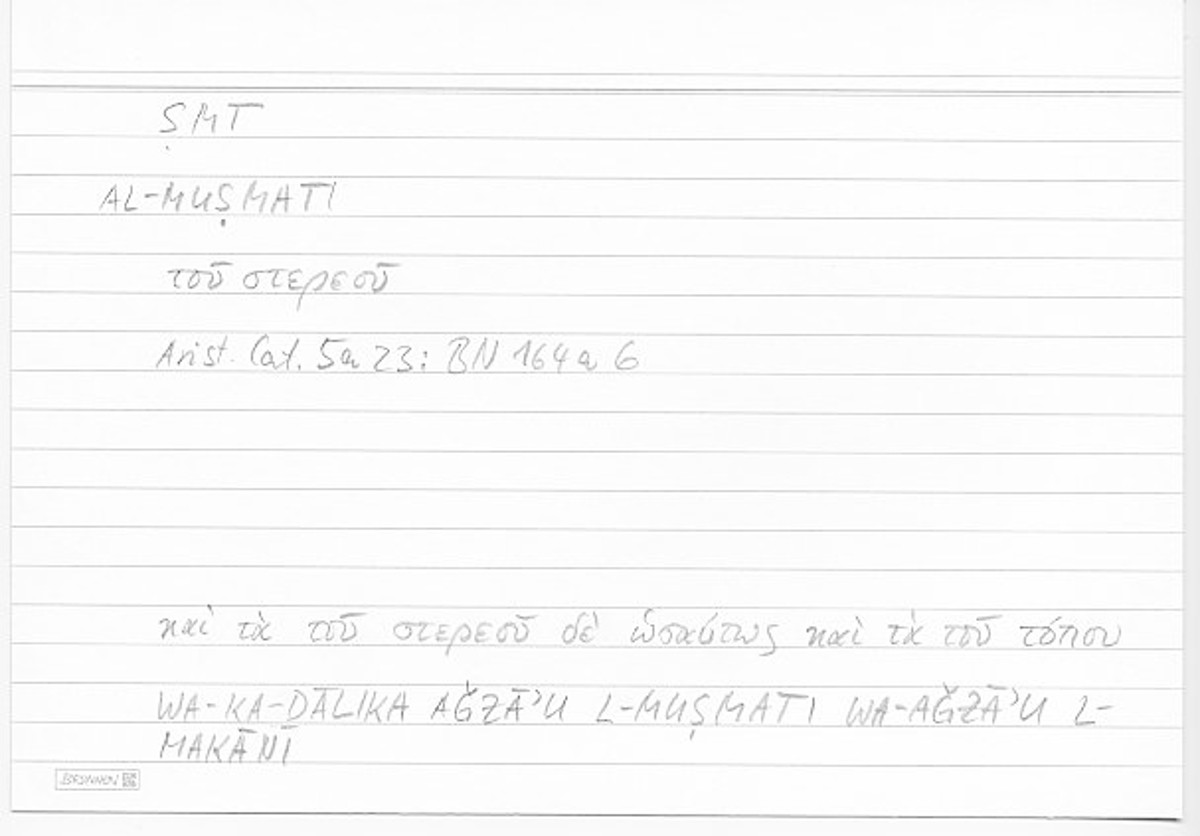 ṢMT
AL-MUṢMATI
τοῦ στερεοῦ
Arist. Cat. 5a 23: BN 164a 6
καὶ τὰ τοῦ στερεοῦ δὲ ὡσαύτως καὶ τὰ τοῦ τόπου
WA-KA-ḎĀLIKA AǦZĀʾU L-MUṢMATI WA-AǦZĀʾU L-
MAKĀNI
BRUNNEN